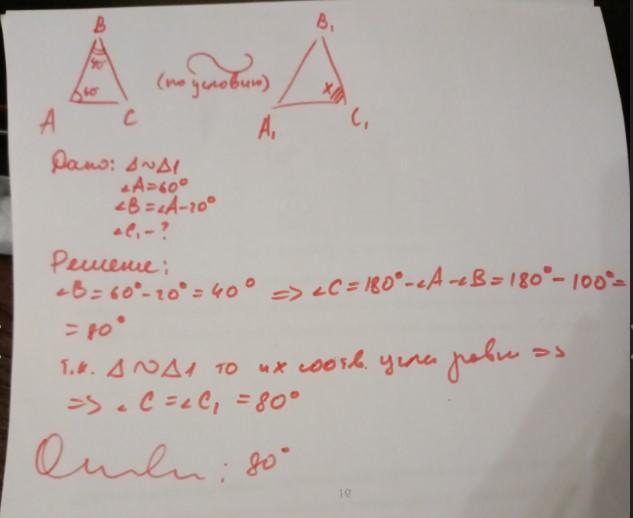 B
40°
60°
A
C
(по условию)
B₁
x
A₁
C₁
Дано: Δ∼Δ1
∠A=60°
∠B=∠A-20°
∠C₁-?
Решение:
∠B=60°-20°=40° => ∠C=180°-∠A-∠B=180°-100°=
=80°
т.к. Δ∼Δ1 то их соотв. углы равны =>
=> ∠C=∠C₁=80°
Ответ: 80°